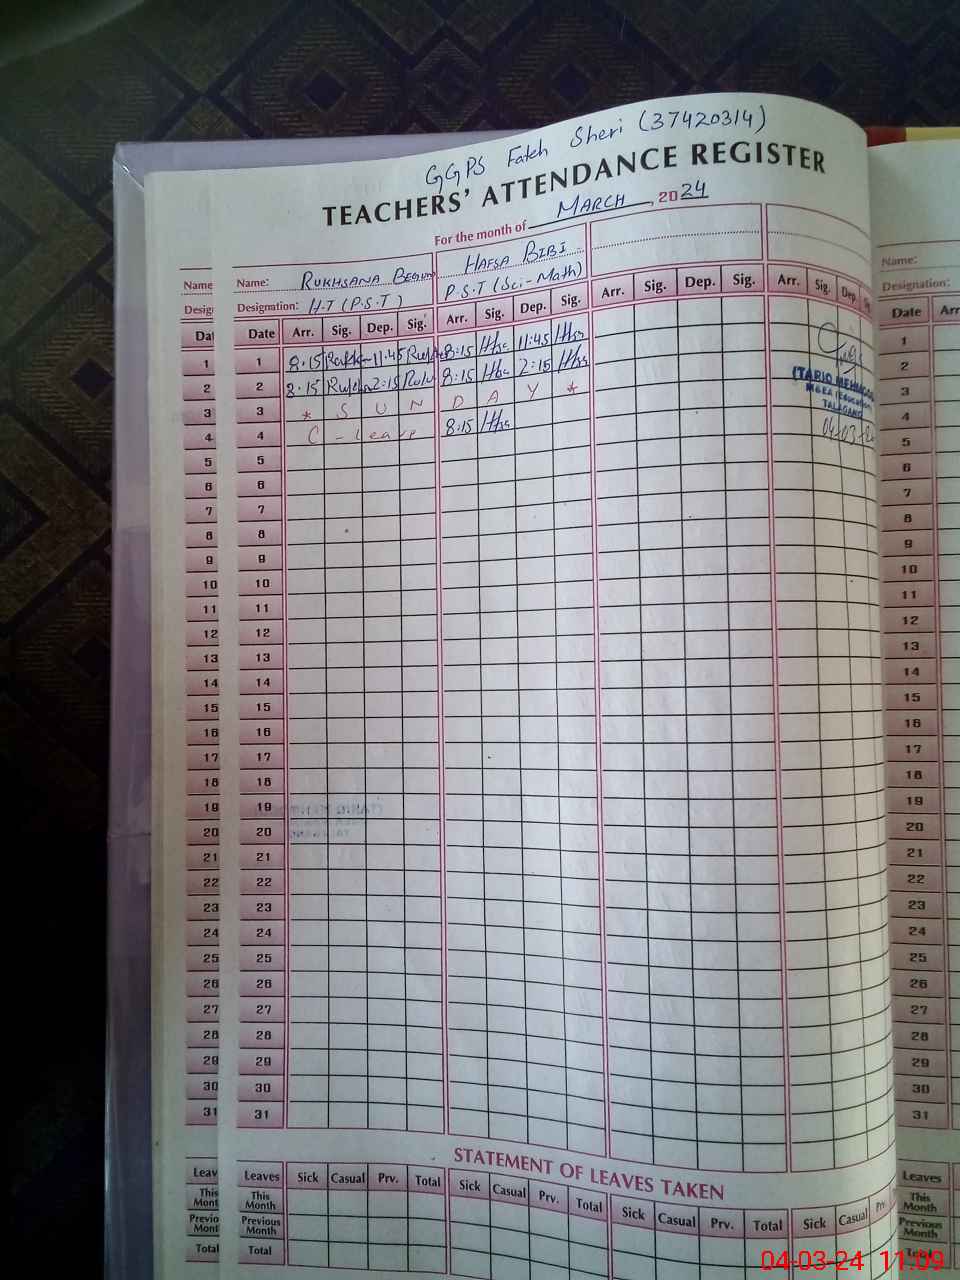 GGPS Fateh Sheri (37420314)
TEACHERS' ATTENDANCE REGISTER
For the month of MARCH, 2024
Name: RUKHSANA BEGUM HAFSA BIBI
Designation: H.T (P.S.T) P.S.T (Sci-Math)
Date Arr. Sig. Dep. Sig. Arr. Sig. Dep. Sig. Arr. Sig. Dep. Sig. Arr. Sig. Dep.
1 8.15 11:45 8:15 11:45
2 8.15 2:15 8:15 2:15
3 * S U N D A Y *
4 C - Leave 8:15
5
6
7
8
9
10
11
12
13
14
15
16
17
18
19
20
21
22
23
24
25
26
27
28
29
30
31
(TARIQ MEHMOOD
TALAGANG
04-03-
STATEMENT OF LEAVES TAKEN
Leaves Sick Casual Prv. Total Sick Casual Prv. Total Sick Casual Prv. Total Sick Casual
This Month
Previous Month
Total
Name
Dat
1
2
3
4
5
6
7
8
9
10
11
12
13
14
15
16
17
18
19
20
21
22
23
24
25
26
27
28
29
30
31
Leav
This
Mont
Previo
Mont
Total
Name:
Designation:
Date Arr
1
2
3
4
5
6
7
8
9
10
11
12
13
14
15
16
17
18
19
20
21
22
23
24
25
26
27
28
29
30
31
Leaves
This Month
Previous Month
Total
04-03-24 11:09